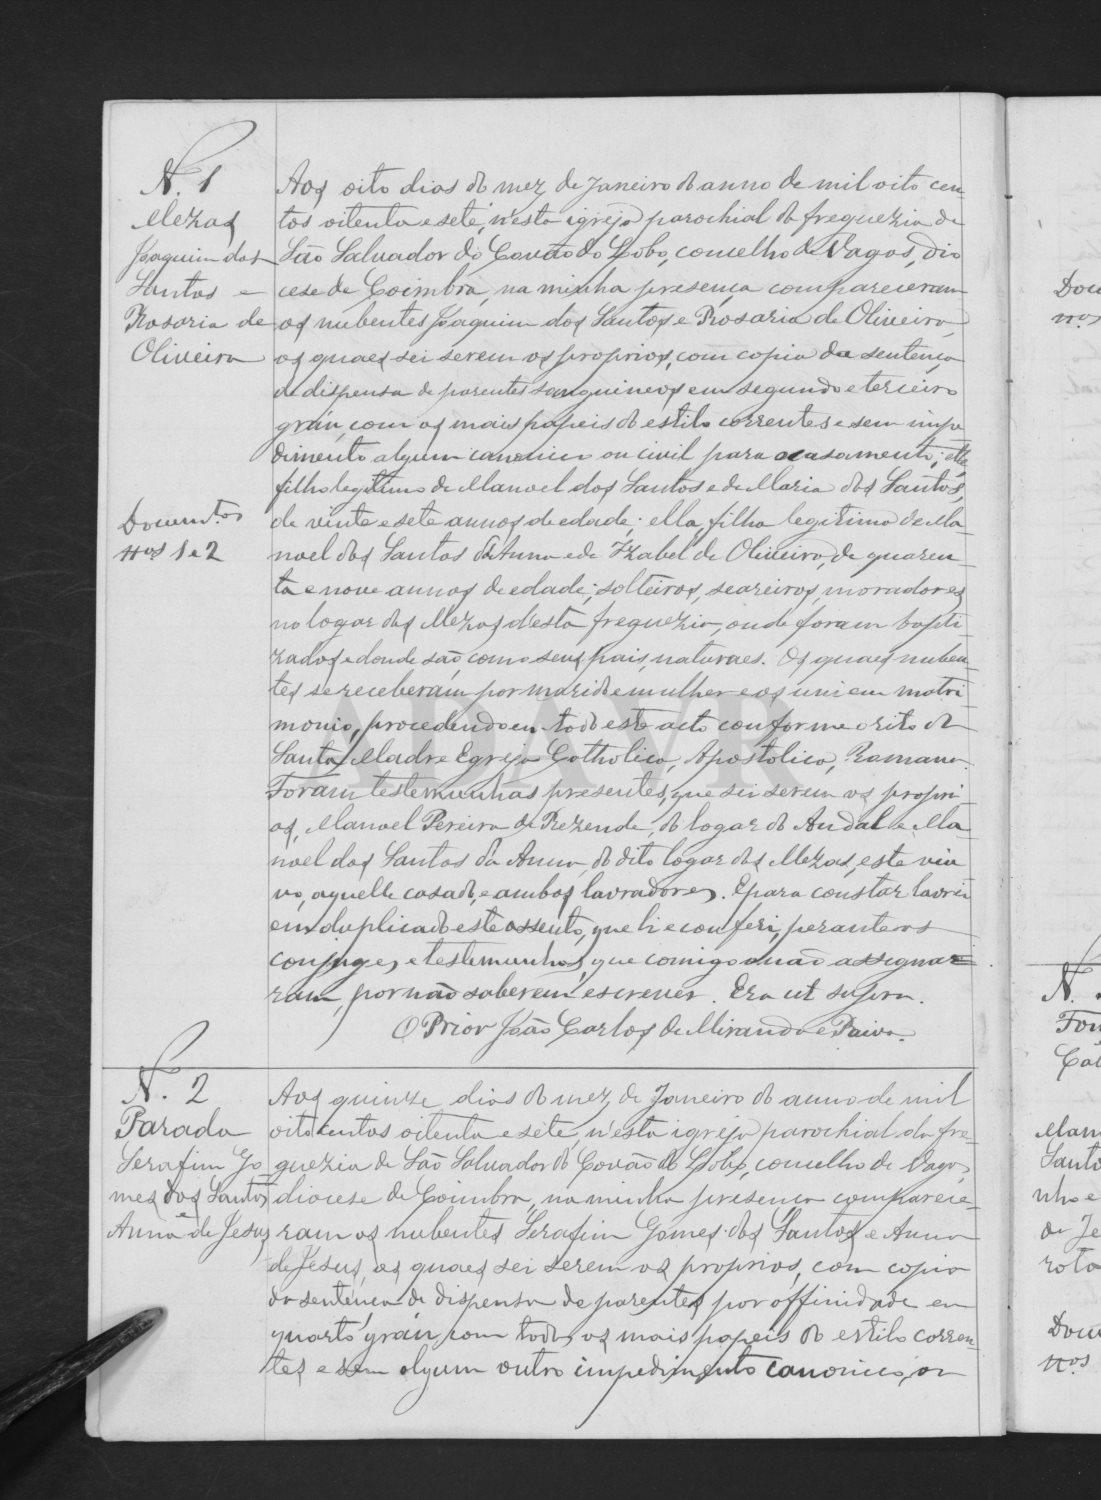 N. 1
Mezas
Joaquim dos
Santos e
Rosaria de
Oliveira
Aos oito dias do mez de Janeiro do anno de mil oito cen
tos oitenta e sete, n'esta igreja parochial da freguezia de
São Salvador do Covão do Lobo, concelho de Vagos, dio
cese de Coimbra, na minha presença compareceram
os nubentes Joaquim dos Santos e Rosaria de Oliveira,
os quaes sei serem os proprios, com copia da sentença
de dispensa de parentes sanguineos em segundo e terceiro
gráu, com os mais papeis do estilo correntes e sem impe
dimento algum canonico ou civil para o casamento; elle
filho legitimo de Manoel dos Santos e de Maria dos Santos,
de vinte e sete annos de edade; ella, filha legitima de Ma
Documentos
nos 1 e 2
noel dos Santos da Anna e de Izabel de Oliveira, de quaren
ta e nove annos de edade; solteiros, seareiros, moradores
no logar das Mezas d'esta freguezia, onde foram bapti
zados e donde são, como seus pais, naturaes. Os quaes nuben
tes se receberam por marido e mulher e os uni em matri
monio, procedendo em todo este acto conforme o rito da
Santa Madre Egreja Catholica, Apostolica, Romana.
Foram testemunhas presentes, que sei serem os propri
os, Manoel Pereira de Rezende, do logar do Andal e Ma
noel dos Santos da Anna, do dito logar das Mezas, este viu
vo, aquelle casado, e ambos lavradores. E para constar lavrei
em duplicado este assento, que li e conferi, perante os
conjuges e testemunhas, que comigo não assigna=
ram, por não saberem escrever. Era ut supra.
O Prior João Carlos de Miranda e Paiva.
N. 2
Parada
Serafim Go
mes dos Santos
e
Anna de Jesus
Aos quinze dias do mez de Janeiro do anno de mil
oitocentos oitenta e sete, n'esta igreja parochial da fre-
guezia de São Salvador do Covão do Lobo, concelho de Vagos,
diocese de Coimbra, na minha presença comparece-
ram os nubentes Serafim Gomes dos Santos e Anna
de Jesus, os quaes sei serem os proprios, com copia
da sentença de dispensa de parentes por affinidade em
quarto gráu, com todos os mais papeis do estilo corren-
tes e sem algum outro impedimento canonico, ou
ADAVR
Docu
nos
N.
Fon
Man
Santo
nho e
de Je
rota
Docu
nos